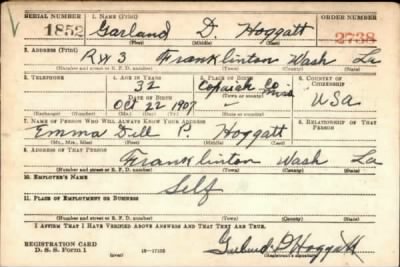 SERIAL NUMBER 1. NAME (Print) ORDER NUMBER
1852 Garland D. Hoggatt 2738
(First) (Middle) (Last)
2. ADDRESS (Print)
R#3 Franklinton Wash La
(Number and street or R. F. D. number) (Town) (County) (State)
3. TELEPHONE 4. AGE IN YEARS 5. PLACE OF BIRTH 6. COUNTRY OF CITIZENSHIP
32 Copiah Co
DATE OF BIRTH (Town or county) Miss USA
Oct 22 1907
(Exchange) (Number) (Mo.) (Day) (Yr.) (State or country)
7. NAME OF PERSON WHO WILL ALWAYS KNOW YOUR ADDRESS 8. RELATIONSHIP OF THAT PERSON
Emma Dell P. Hoggatt
(Mr., Mrs., Miss) (First) (Middle) (Last)
9. ADDRESS OF THAT PERSON
Franklinton Wash La
(Number and street or R. F. D. number) (Town) (County) (State)
10. EMPLOYER'S NAME
Self
11. PLACE OF EMPLOYMENT OR BUSINESS
(Number and street or R. F. D. number) (Town) (County) (State)
I AFFIRM THAT I HAVE VERIFIED ABOVE ANSWERS AND THAT THEY ARE TRUE.
REGISTRATION CARD
D. S. S. Form 1 Hoggatt
(Registrant's signature)